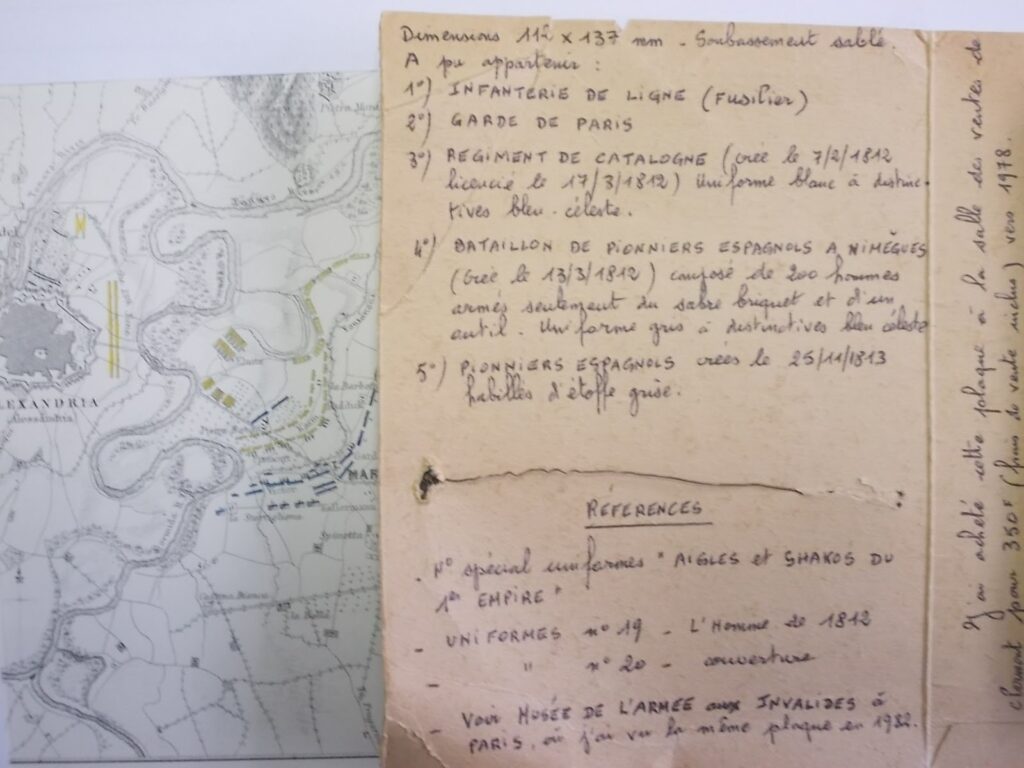 Dimensions 112 x 137 mm - Soubassement sablé.
A pu appartenir :
1°) INFANTERIE DE LIGNE (Fusilier)
2°) GARDE DE PARIS
3°) REGIMENT DE CATALOGNE (créé le 7/2/1812
licencié le 17/3/1812) Uniforme blanc à distinc-
tives bleu-céleste.
4°) BATAILLON DE PIONNIERS ESPAGNOLS A NIMÈGUES
(créé le 13/3/1812) composé de 200 hommes
armés seulement du sabre briquet et d'un
outil. Uniforme gris à distinctives bleu céleste
5°) PIONNIERS ESPAGNOLS créés le 25/11/1813
habillés d'étoffe grise.
RÉFÉRENCES
- N° spécial uniformes "AIGLES et SHAKOS DU
1er EMPIRE"
- UNIFORMES n° 19 - L'Homme de 1812
- " n° 20 - couverture
- Voir MUSÉE DE L'ARMEE aux INVALIDES à
PARIS, où j'ai vu la même plaque en 1982.
J'ai acheté cette plaque à la salle des ventes de
Clermont pour 350F (frais de vente inclus) vers 1978.
ALEXANDRIA
Alessandria
MAR